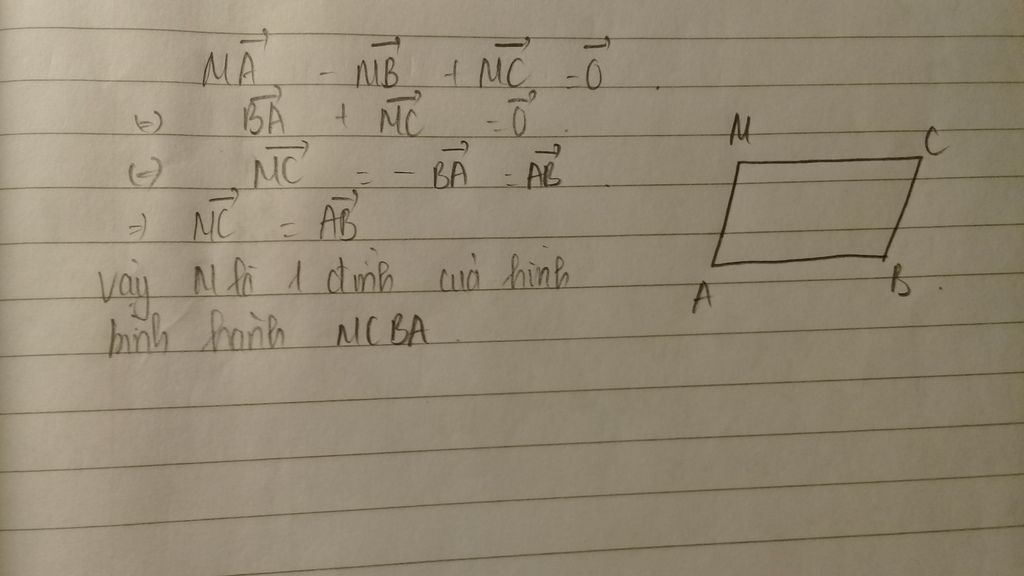 MA⃗ - MB⃗ + MC⃗ = 0⃗.
(=) BA⃗ + MC⃗ = 0⃗.
(=) MC⃗ = - BA⃗ = AB⃗.
=) MC⃗ = AB⃗
vậy M là 1 đỉnh của hình
bình hành MCBA.
M
C
A
B.